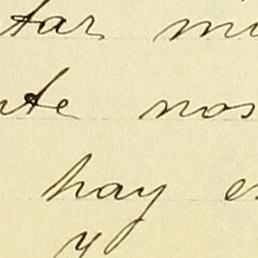 tar mi
nte nos
hay e
y